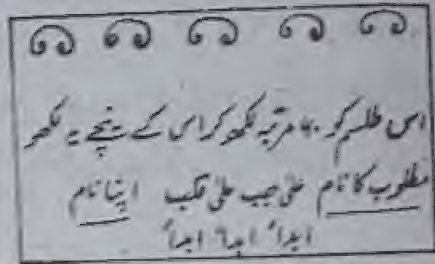 اس طلسم کو ۷۰ مرتبہ لکھ کر اس کے نیچے یہ لکھو
مطلوب کا نام علیٰ حب علیٰ قلب اپنا نام
ابداً ابداً ابداً